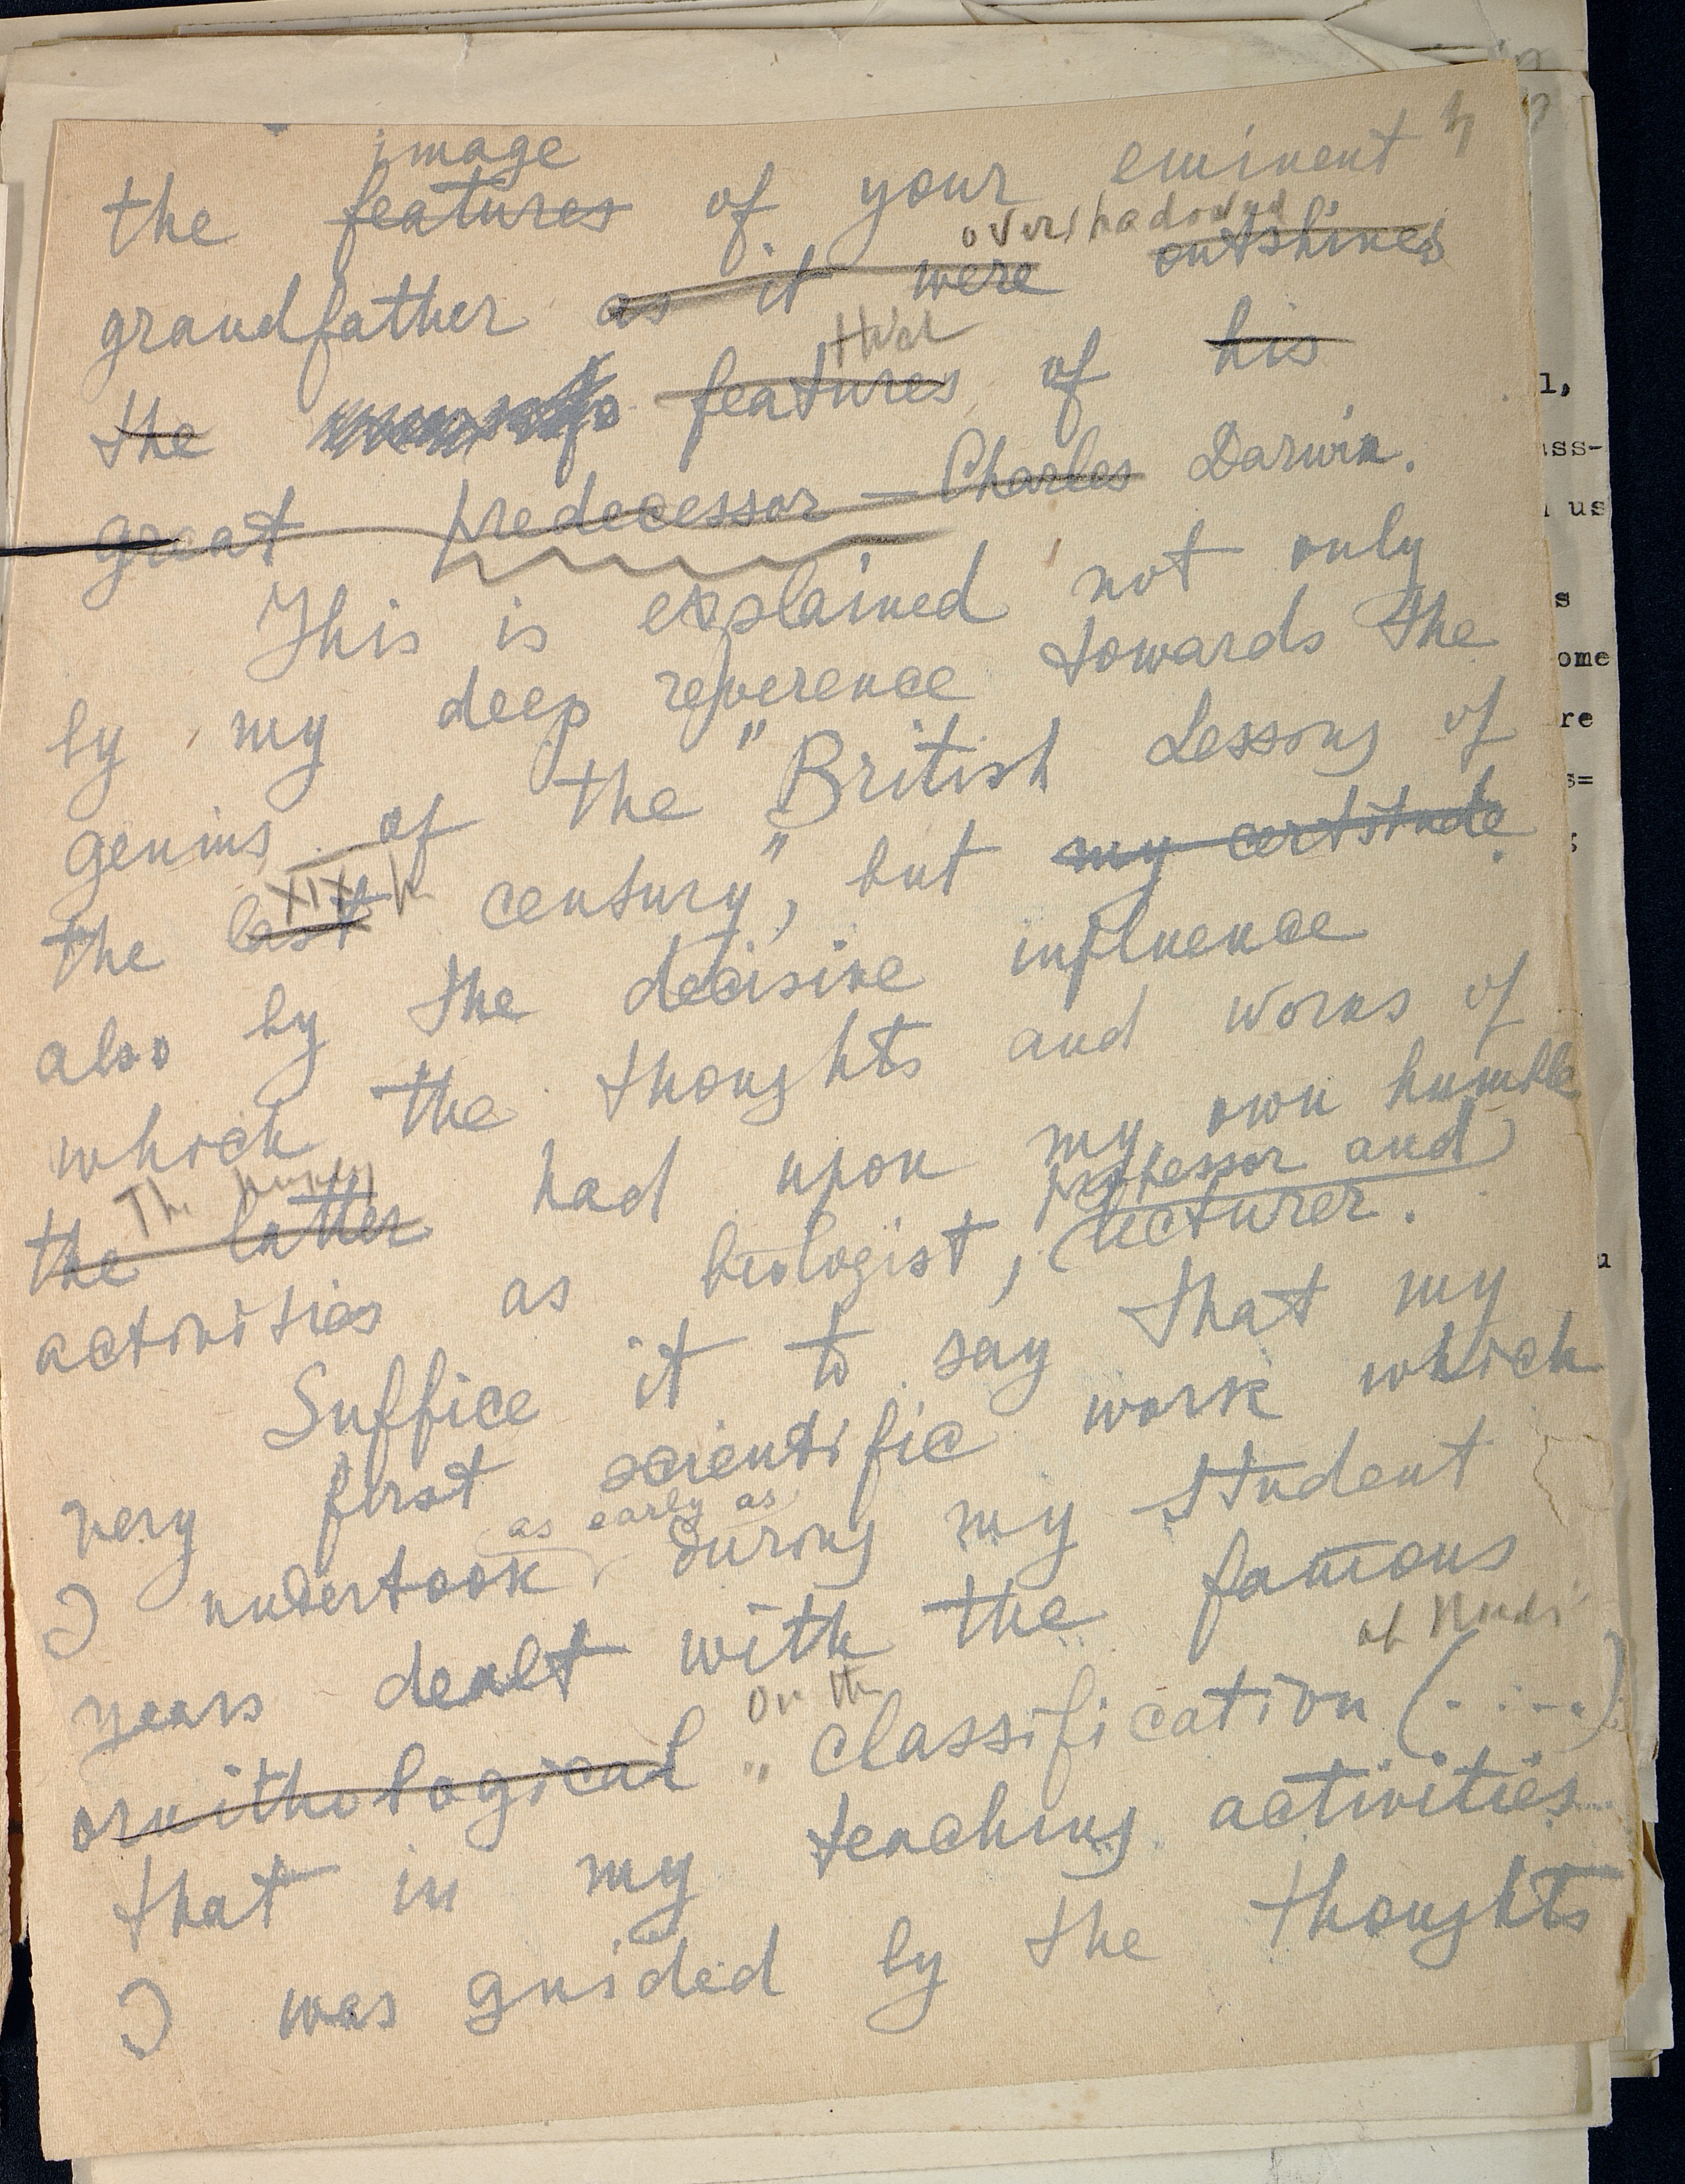 4
image
the features of your eminent
overshadowed
grandfather as it were outshines
that
the features of his
great predecessor — Charles Darwin.
This is explained not only
by my deep reverence towards the
genius of the "British Lessons of
XIXth
the last century", but my certitude
also by the decisive influence
which the thoughts and works of
the latter had upon my own humble
professor and
activities as biologist, lecturer.
Suffice it to say that my
very first scientific work which
as early as
I undertook during my student
years dealt with the famous
of
on the
ornithological "classification (.....)
that in my teaching activities
I was guided by the thoughts
l,
ass-
us
s
ome
re
s=
u